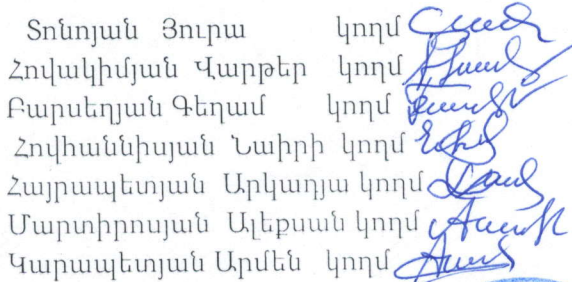 Տոնոյան Յուրա կողմ
Հովակիմյան Վարթեր կողմ
Բարսեղյան Գեղամ կողմ
Հովհաննիսյան Նաիրի կողմ
Հայրապետյան Արկադյա կողմ
Մարտիրոսյան Ալեքսան կողմ
Կարապետյան Արմեն կողմ